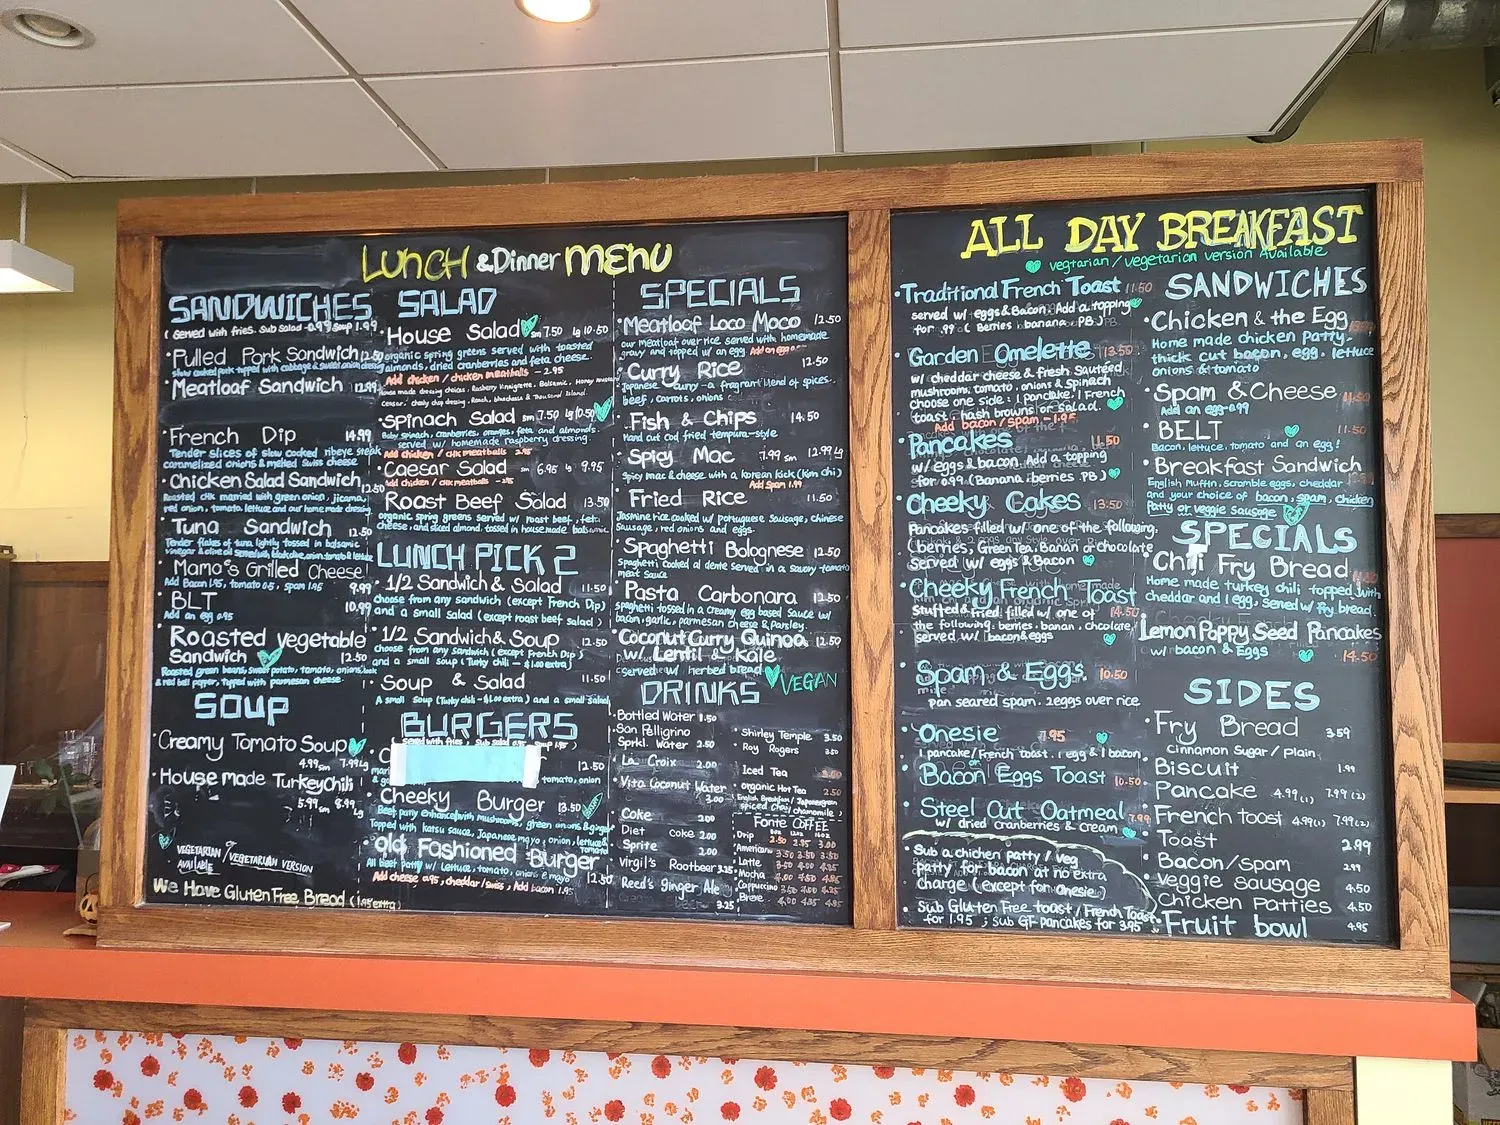 LUNCH & Dinner MENU
SANDWICHES
(Served with fries. Sub salad -0.99 Soup 1.99
Pulled Pork Sandwich 12.50
slow cooked pork topped with cabbage & sweet onion dressing
Meatloaf Sandwich 12.99
French Dip 14.99
Tender slices of slow cooked ribeye steak
caramelized onions & melted Swiss cheese
Chicken Salad Sandwich 12.50
Roasted chk married with green onion, jicama,
red onion, tomato, lettuce and our home made dressing
Tuna Sandwich 12.50
Tender flakes of tuna lightly tossed in balsamic
vinegar & olive oil served w/
Mama's Grilled Cheese
Add Bacon 1.95, tomato 0.5, spam 1.95 9.99
BLT 10.99
Add an egg 0.95
Roasted vegetable
Sandwich 12.50
Roasted green beans, sweet potato, tomato, onions,
& red bell pepper, topped with parmesan cheese.
SOUP
Creamy Tomato Soup
4.99 sm 7.99 Lg
House made Turkey Chili
5.99 sm 8.99 Lg
VEGETARIAN / VEGETARIAN VERSION
AVAILABLE
We Have Gluten Free Bread (1.95 extra)
SALAD
House Salad sm 7.50 lg 10.50
organic spring greens served with toasted
almonds, dried cranberries and feta cheese.
Add chicken / chicken meatballs - 2.95
Home made dressing choices, Rasberry Vinaigrette, Balsamic, Honey mustard
Ceasar, Ranch, bluecheese & Thousand Island.
Spinach Salad sm 7.50 lg 10.50
Baby spinach, cranberries, oranges, feta and almonds
served w/ homemade raspberry dressing.
Add chicken / chk meatballs 2.95
Caesar Salad sm 6.95 lg 9.95
Add chicken / chk meatballs - 2.95
Roast Beef Salad 13.50
organic spring greens served w/ roast beef, feta
cheese and sliced almond, tossed in house made balsamic
LUNCH PICK 2
1/2 Sandwich & Salad 11.50
choose from any sandwich (except French Dip)
and a small Salad (except roast beef salad)
1/2 Sandwich & Soup 12.50
choose from any sandwich (except French Dip)
and a small soup (Turky chili - $1.00 extra)
Soup & Salad 11.50
A small soup (Turky chili - $1.00 extra) and a small salad
BURGERS
Served with fries, Sub salad 0.95 Soup 1.95)
12.50
tomato, onion
Cheeky Burger 13.50
Beef patty enhanced with mushrooms, green onions & ginger
Topped with katsu sauce, Japanese mayo, onion, lettuce &
tomato
Old Fashioned Burger
All beef Patty w/ Lettuce, tomato, onions & mayo 12.50
Add cheese 0.95, cheddar/swiss, Add bacon 1.95
SPECIALS
Meatloaf Loco Moco 12.50
our meatloaf over rice served with homemade
gravy and topped w/ an egg Add an egg
Curry Rice 12.50
Japanese curry - a fragrant blend of spices.
beef, carrots, onions
Fish & Chips 14.50
Hand cut Cod fried tempura-style
Spicy Mac 7.99 sm 12.99 Lg
Spicy mac & cheese with a korean kick (Kim chi)
Add Spam 1.99
Fried Rice 11.50
Jasmine rice cooked w/ portuguese Sausage, Chinese
Sausage, red onions and eggs.
Spaghetti Bolognese 12.50
Spaghetti cooked al dente served in a savory tomato
meat sauce
Pasta Carbonara 12.50
spaghetti tossed in a creamy egg based sauce w/
bacon, garlic, parmesan cheese & parsley.
Coconut Curry Quinoa 12.50
w/ Lentil & Kale
Served w/ herbed bread VEGAN
DRINKS
Bottled Water 1.50
San Pelligrino
Sprkl. Water 2.50
La Croix 2.00
Vita Coconut Water
3.00
Coke 2.00
Diet coke 2.00
Sprite 2.00
Virgil's Rootbeer 3.25
Reed's ginger Ale
3.25
Shirley Temple 3.50
Roy Rogers 3.50
Iced Tea
organic Hot Tea 2.50
English Breakfast / Japanese green
spiced Chai / Chamomile)
Fonte COFFEE
Drip 2.50 2.95 3.00
Americano
Latte
Mocha
Cappuccino
Breve
ALL DAY BREAKFAST
vegtarian / vegetarian version Available
Traditional French Toast 11.50
served w/ eggs & Bacon. Add a topping
for .99 (Berries, banana, PB)
Garden Omelette 13.50
w/ cheddar cheese & fresh Sauteed
mushroom, tomato, onions & Spinach
choose one side: 1 pancake, 1 French
toast, hash browns or salad.
Add bacon/spam - 1.95
Pancakes 11.50
w/ eggs & bacon. Add a topping
for 0.99 (Banana, berries, PB)
Cheeky Cakes 13.50
Pancakes filled w/ one of the following,
(berries, Green Tea, Banan or chocolate
Served w/ eggs & Bacon
Cheeky French Toast
Stuffed & Fried, filled w/ one of 14.50
the following: berries, banan, chcolate,
served w/ bacon & eggs
Spam & Eggs 10.50
pan seared spam, 2 eggs over rice
Onesie 7.95
1 pancake/French toast, 1 egg & 1 bacon
Bacon Eggs Toast 10.50
Steel Cut Oatmeal 7.99
w/ dried cranberries & cream
Sub a chichen patty / veg
patty for bacon at no extra
charge (except for onesie)
Sub Gluten Free toast / French Toast
for 1.95; Sub GF pancakes for 3.95
SANDWICHES
Chicken & the Egg
Home made chicken patty,
thick cut bacon, egg, lettuce
onions & tomato
Spam & Cheese 11.50
Add an egg-0.99
BELT 11.50
Bacon, lettuce, tomato and an egg!
Breakfast Sandwich
English muffin, scramble eggs, cheddar
and your choice of bacon, spam, chicken
Patty or veggie sausage
SPECIALS
Chili Fry Bread
Home made turkey chili topped with
cheddar and 1 egg, served w/ fry bread.
Lemon Poppy Seed Pancakes
w/ bacon & Eggs 14.50
SIDES
Fry Bread 3.59
Cinnamon Sugar / plain
Biscuit 1.99
Pancake 4.99(1) 7.99(2)
French toast 4.99(1) 7.99(2)
Toast 2.99
Bacon/spam 2.99
Veggie Sausage 4.50
Chicken Patties 4.50
Fruit bowl 4.95